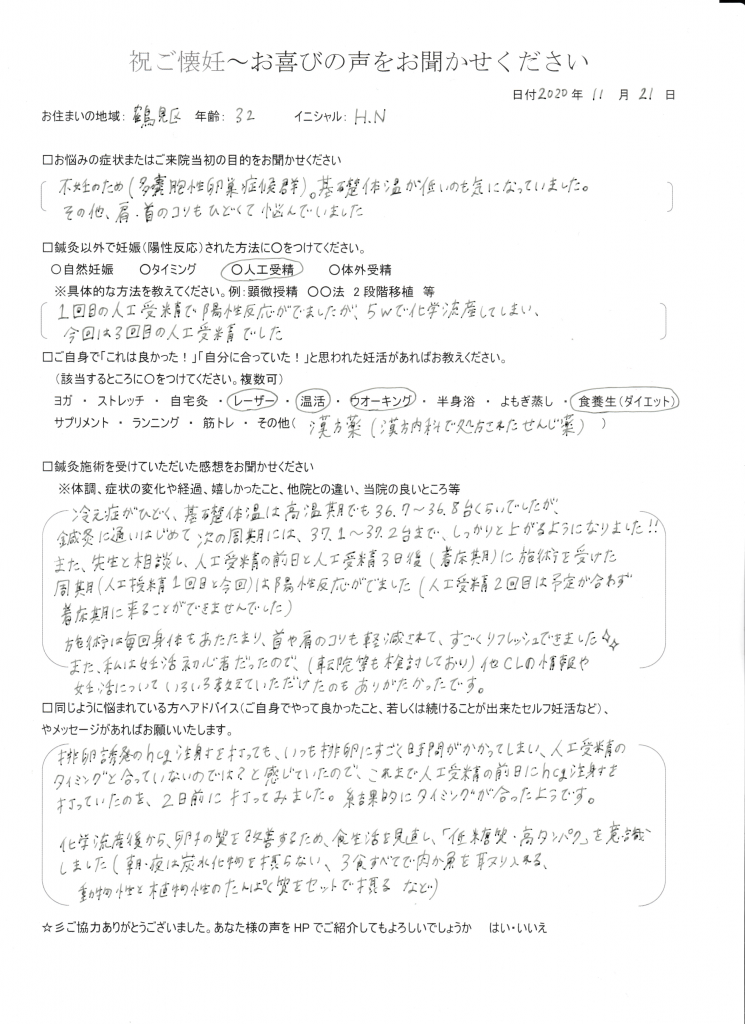 祝ご懐妊～お喜びの声をお聞かせください
日付2020年 11 月 21 日
お住まいの地域: 鶴見区 年齢: 32 イニシャル: H.N
□お悩みの症状またはご来院当初の目的をお聞かせください
不妊のため(多嚢胞性卵巣症候群)。基礎体温が低いのも気になっていました。
その他、肩・首のコリもひどくて悩んでいました
□鍼灸以外で妊娠(陽性反応)された方法に○をつけてください。
○自然妊娠 ○タイミング ○人工受精 ○体外受精
※具体的な方法を教えてください。例:顕微授精 ○○法 2段階移植 等
1回目の人工受精で陽性反応がでましたが、5wで化学流産してしまい、
今回は3回目の人工受精でした
□ご自身で「これは良かった!」「自分に合っていた!」と思われた妊活があればお教えください。
(該当するところに○をつけてください。複数可)
ヨガ ・ ストレッチ ・ 自宅灸 ・ レーザー ・ 温活 ・ ウオーキング ・ 半身浴 ・ よもぎ蒸し ・ 食養生(ダイエット)
サプリメント ・ ランニング ・ 筋トレ ・ その他( 漢方薬(漢方内科で処方されたせんじ薬) )
□鍼灸施術を受けていただいた感想をお聞かせください
※体調、症状の変化や経過、嬉しかったこと、他院との違い、当院の良いところ等
冷え症がひどく、基礎体温は高温期でも36.7～36.8台くらいでしたが、
鍼灸に通いはじめて次の周期には、37.1～37.2台まで、しっかりと上がるようになりました!!
また、先生と相談し、人工受精の前日と人工受精3日後(着床期)に施術を受けた
周期(人工授精1回目と今回)は陽性反応がでました(人工受精2回目は予定が合わず
着床期に来ることができませんでした)
施術は毎回身体もあたたまり、首や肩のコリも軽減されて、すごくリフレッシュできました
また、私は妊活初心者だったので、(転院等も検討しており)他CLの情報や
妊活についていろいろ教えていただけたのもありがたかったです。
□同じように悩まれている方へアドバイス(ご自身でやって良かったこと、若しくは続けることが出来たセルフ妊活など)、
やメッセージがあればお願いいたします。
排卵誘発のhcg注射を打っても、いつも排卵にすごく時間がかかってしまい、人工受精の
タイミングと合っていないのでは?と感じていたので、これまで人工受精の前日にhcg注射を
打っていたのを、2日前に打ってみました。結果的にタイミングが合ったようです。
化学流産後から、卵子の質を改善するため、食生活を見直し、「低糖質・高タンパク」を意識
しました(朝・夜は炭水化物を摂らない、3食すべてで肉か魚を取り入れる、
動物性と植物性のたんぱく質をセットで摂る など)
☆彡ご協力ありがとうございました。あなた様の声をHPでご紹介してもよろしいでしょうか はい・いいえ